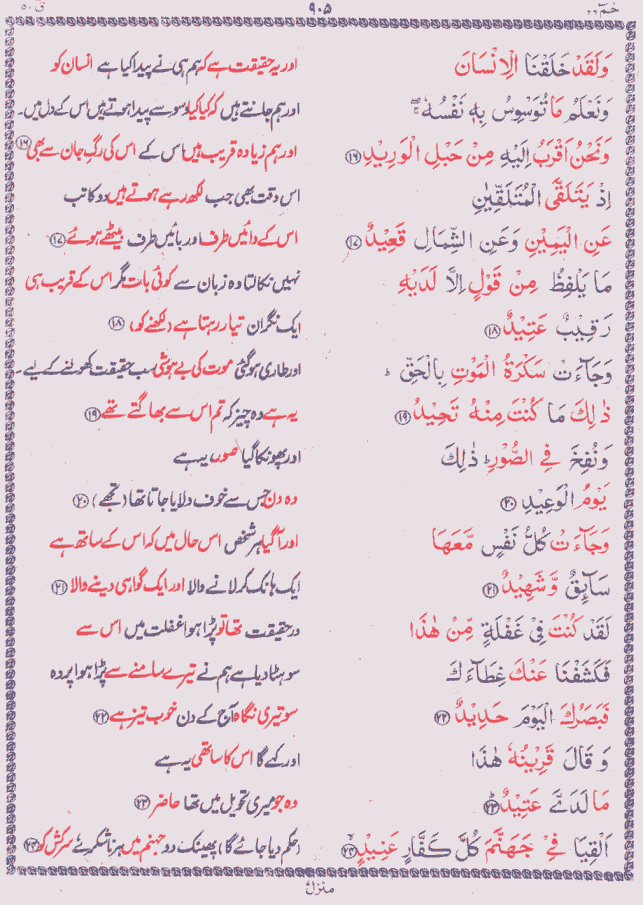 حٰمٓ ۲۶ ۹۰۵ قٓ ۵۰
وَلَقَدْ خَلَقْنَا الْاِنْسَانَ اور یہ حقیقت ہے کہ ہم ہی نے پیدا کیا ہے انسان کو
وَنَعْلَمُ مَا تُوَسْوِسُ بِهٖ نَفْسُهٗ ۖۚ اور ہم جانتے ہیں کہ کیا کیا وسوسے پیدا ہوتے ہیں اس کے دل میں۔
وَنَحْنُ اَقْرَبُ اِلَيْهِ مِنْ حَبْلِ الْوَرِيْدِ ⑯ اور ہم زیادہ قریب ہیں اس کے اس کی رگِ جان سے بھی ⑯
اِذْ يَتَلَقَّى الْمُتَلَقِّيٰنِ اس وقت بھی جب لکھ رہے ہوتے ہیں دو کاتب
عَنِ الْيَمِيْنِ وَعَنِ الشِّمَالِ قَعِيْدٌ ⑰ اس کے دائیں طرف اور بائیں طرف بیٹھے ہوئے ⑰
مَا يَلْفِظُ مِنْ قَوْلٍ اِلَّا لَدَيْهِ نہیں نکالتا وہ زبان سے کوئی بات مگر اس کے قریب ہی
رَقِيْبٌ عَتِيْدٌ ⑱ ایک نگران تیار رہتا ہے (لکھنے کو) ⑱
وَجَآءَتْ سَكْرَةُ الْمَوْتِ بِالْحَقِّ ؕ اور طاری ہو گئی موت کی بے ہوشی سب حقیقت کھولنے کے لیے۔
ذٰلِكَ مَا كُنْتَ مِنْهُ تَحِيْدُ ⑲ یہ ہے وہ چیز کہ تم اس سے بھاگتے تھے ⑲
وَنُفِخَ فِي الصُّوْرِ ؕ ذٰلِكَ اور پھونکا گیا صور، یہ ہے
يَوْمُ الْوَعِيْدِ ⑳ وہ دن جس سے خوف دلایا جاتا تھا (تجھے) ⑳
وَجَآءَتْ كُلُّ نَفْسٍ مَّعَهَا اور آ گیا ہر شخص اس حال میں کہ اس کے ساتھ ہے
سَآئِقٌ وَّشَهِيْدٌ ㉑ ایک ہانک کر لانے والا اور ایک گواہی دینے والا ㉑
لَقَدْ كُنْتَ فِيْ غَفْلَةٍ مِّنْ هٰذَا درحقیقت تھا تو پڑا ہوا غفلت میں اس سے
فَكَشَفْنَا عَنْكَ غِطَآءَكَ سو ہٹا دیا ہے ہم نے تیرے سامنے سے پڑا ہوا پردہ
فَبَصَرُكَ الْيَوْمَ حَدِيْدٌ ㉒ سو تیری نگاہ آج کے دن خوب تیز ہے ㉒
وَقَالَ قَرِيْنُهٗ هٰذَا اور کہے گا اس کا ساتھی یہ ہے
مَا لَدَيَّ عَتِيْدٌ ؕ ㉓ وہ جو میری تحویل میں تھا حاضر ㉓
اَلْقِيَا فِيْ جَهَنَّمَ كُلَّ كَفَّارٍ عَنِيْدٍ ۙ ㉔ (حکم دیا جائے گا) پھینک دو جہنم میں ہر ناشکرے سرکش کو ㉔
منزل